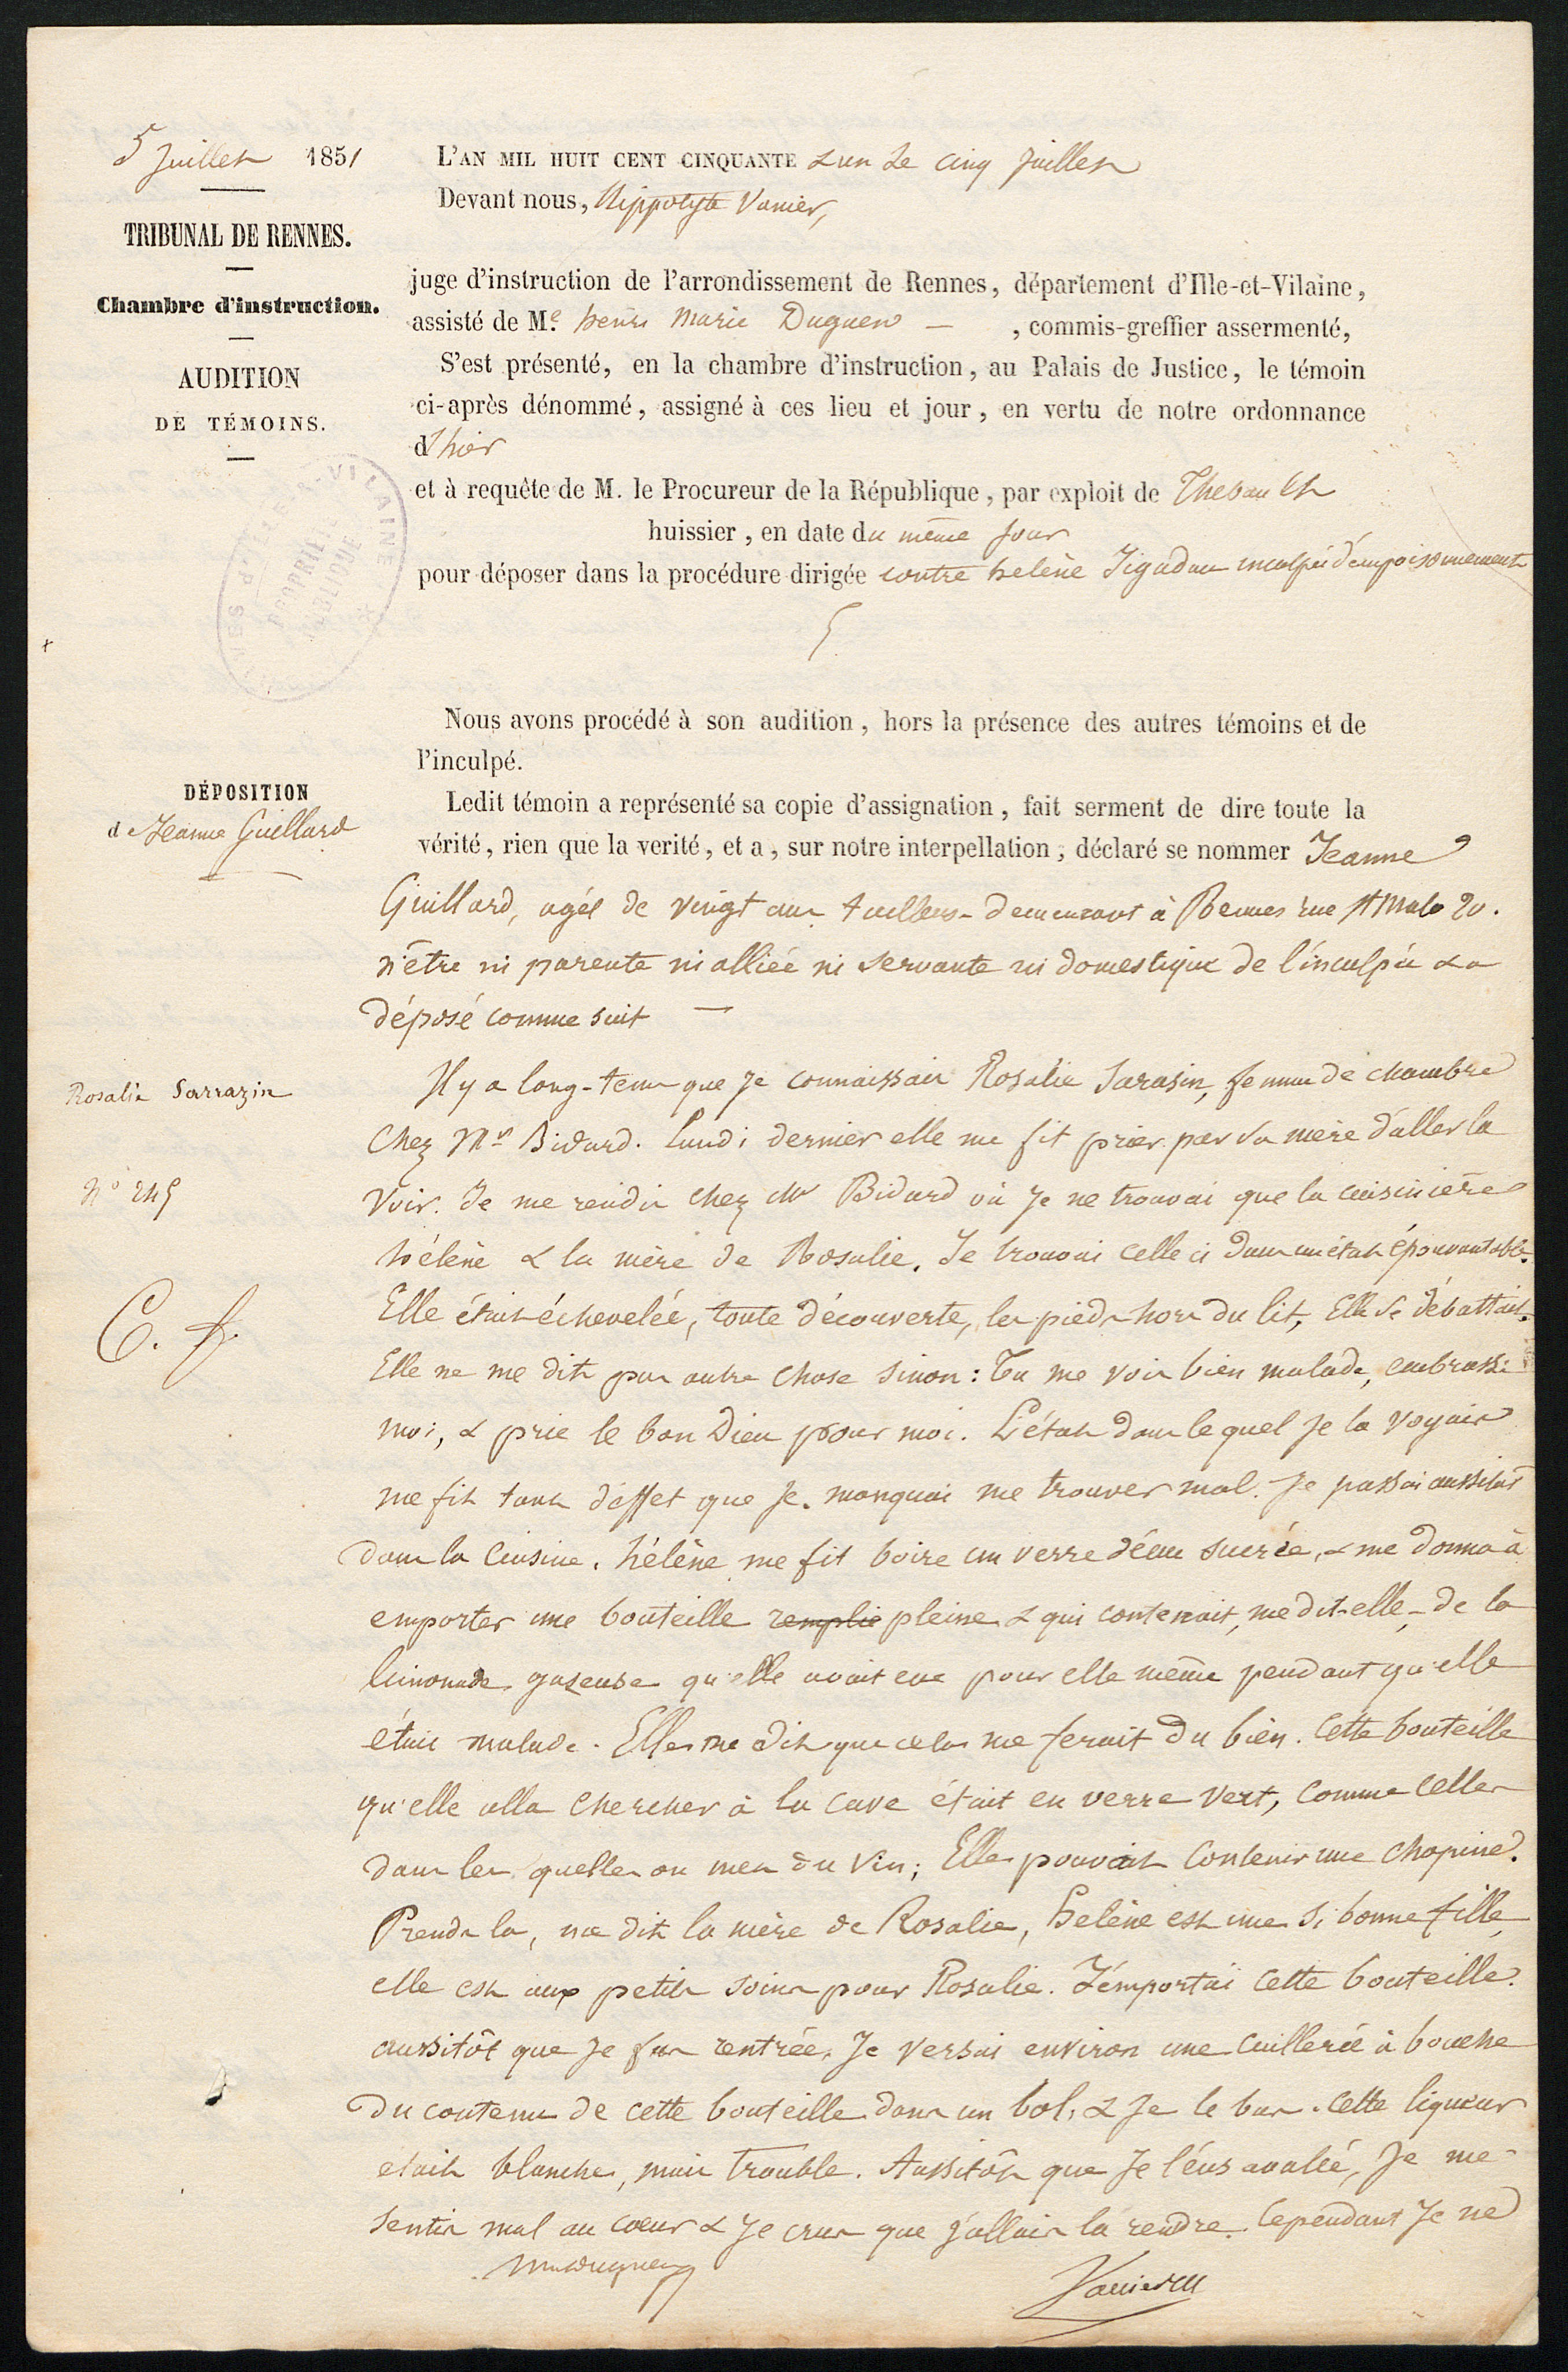 5 Juillet 1851
TRIBUNAL DE RENNES.
Chambre d'instruction.
AUDITION
DE TÉMOINS.
L'AN MIL HUIT CENT CINQUANTE & un le cinq Juillet
Devant nous, Hippolyte Vanier,
juge d'instruction de l'arrondissement de Rennes, département d'Ille-et-Vilaine,
assisté de Me. henri Marie Duguen — , commis-greffier assermenté,
S'est présenté, en la chambre d'instruction, au Palais de Justice, le témoin
ci-après dénommé, assigné à ces lieu et jour, en vertu de notre ordonnance
d'hier
et à requête de M. le Procureur de la République, par exploit de Thebault
huissier, en date du même jour
pour déposer dans la procédure dirigée contre helène Jigadau inculpée d'empoisonnement
Nous avons procédé à son audition, hors la présence des autres témoins et de
l'inculpé.
DÉPOSITION
de Jeanne Guillard
Ledit témoin a représenté sa copie d'assignation, fait serment de dire toute la
vérité, rien que la verité, et a, sur notre interpellation, déclaré se nommer Jeanne
Guillard, agée de vingt ans, demeurant à Rennes rue St Malo 20.
n'être ni parente ni alliée ni servante ni domestique de l'inculpée & a
déposé comme suit —
Rosalie Sarrazin
Il y a long-tems que je connaissais Rosalie Sarasin, femme de chambre
chez Mr Bidard. Lundi dernier elle me fit prier par sa mère d'aller la
N° 245
voir. Je me rendis chez Mr Bidard où je ne trouvai que la cuisinière
hélène & la mère de Rosalie. Je trouvai celle ci dans un état épouvantable.
C. f.
Elle était échevelée, toute découverte, les pieds hors du lit, Elle se débattait.
Elle ne me dit pas autre chose sinon : Tu me vois bien malade, embrasse
moi, & prie le bon Dieu pour moi. L'état dans lequel je la voyais
me fit tant d'effet que je manquai me trouver mal. Je passai aussitôt
dans la cuisine. hélène me fit boire un verre d'eau sucrée, & me donna à
emporter une bouteille remplie pleine & qui contenait, me dit-elle, de la
limonade gazeuse qu'elle avait eue pour elle même pendant qu'elle
était malade. Elle me dit que cela me ferait du bien. Cette bouteille
qu'elle alla chercher à la cave était en verre vert, comme celles
dans les quelles on met du vin; Elle pouvait contenir une chopine.
Prends la, me dit la mère de Rosalie, helène est une si bonne fille,
elle est aux petits soins pour Rosalie. J'emportai cette bouteille.
aussitôt que je fus rentrée, Je versai environ une cuillerée à bouche
du contenu de cette bouteille dans un bol, & je le bus. cette liqueur
était blanche, mais trouble. Aussitôt que je l'eus avalée, je me
sentis mal au coeur & je crus que j'allais la rendre. Cependant je ne
hmduguen
Vanier